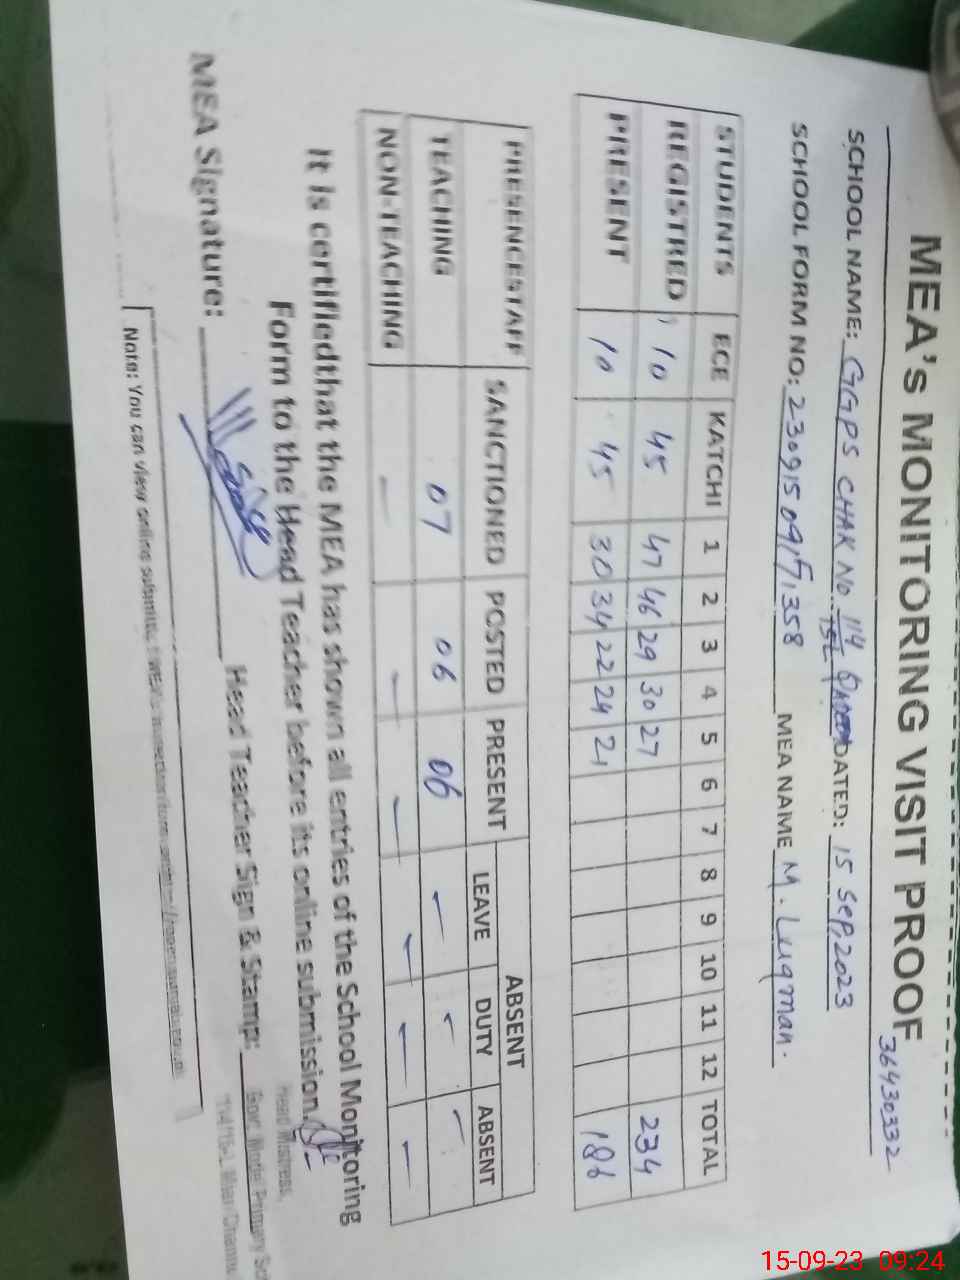 MEA's MONITORING VISIT PROOF
36430332
SCHOOL NAME: GGPS CHAK No 114 DATED: 15 Sep, 2023
15L
SCHOOL FORM NO: MEA NAME M. Luqman.
STUDENTS ECE KATCHI 1 2 3 4 5 6 7 8 9 10 11 12 TOTAL
REGISTRED 10 45 47 46 29 30 27 234
PRESENT 10 45 30 34 22 24 21 186
PRESENCESTAFF SANCTIONED POSTED PRESENT ABSENT
LEAVE DUTY ABSENT
TEACHING 07 06 06 - - -
NON-TEACHING - - - - - -
It is certifiedthat the MEA has shown all entries of the School Monitoring
Form to the Head Teacher before its online submission.
MEA Signature: Head Teacher Sign & Stamp:
Head Mistress,
Govt. Model Primary
114/15-L Mian
Note: You can view online
15-09-23 09:24